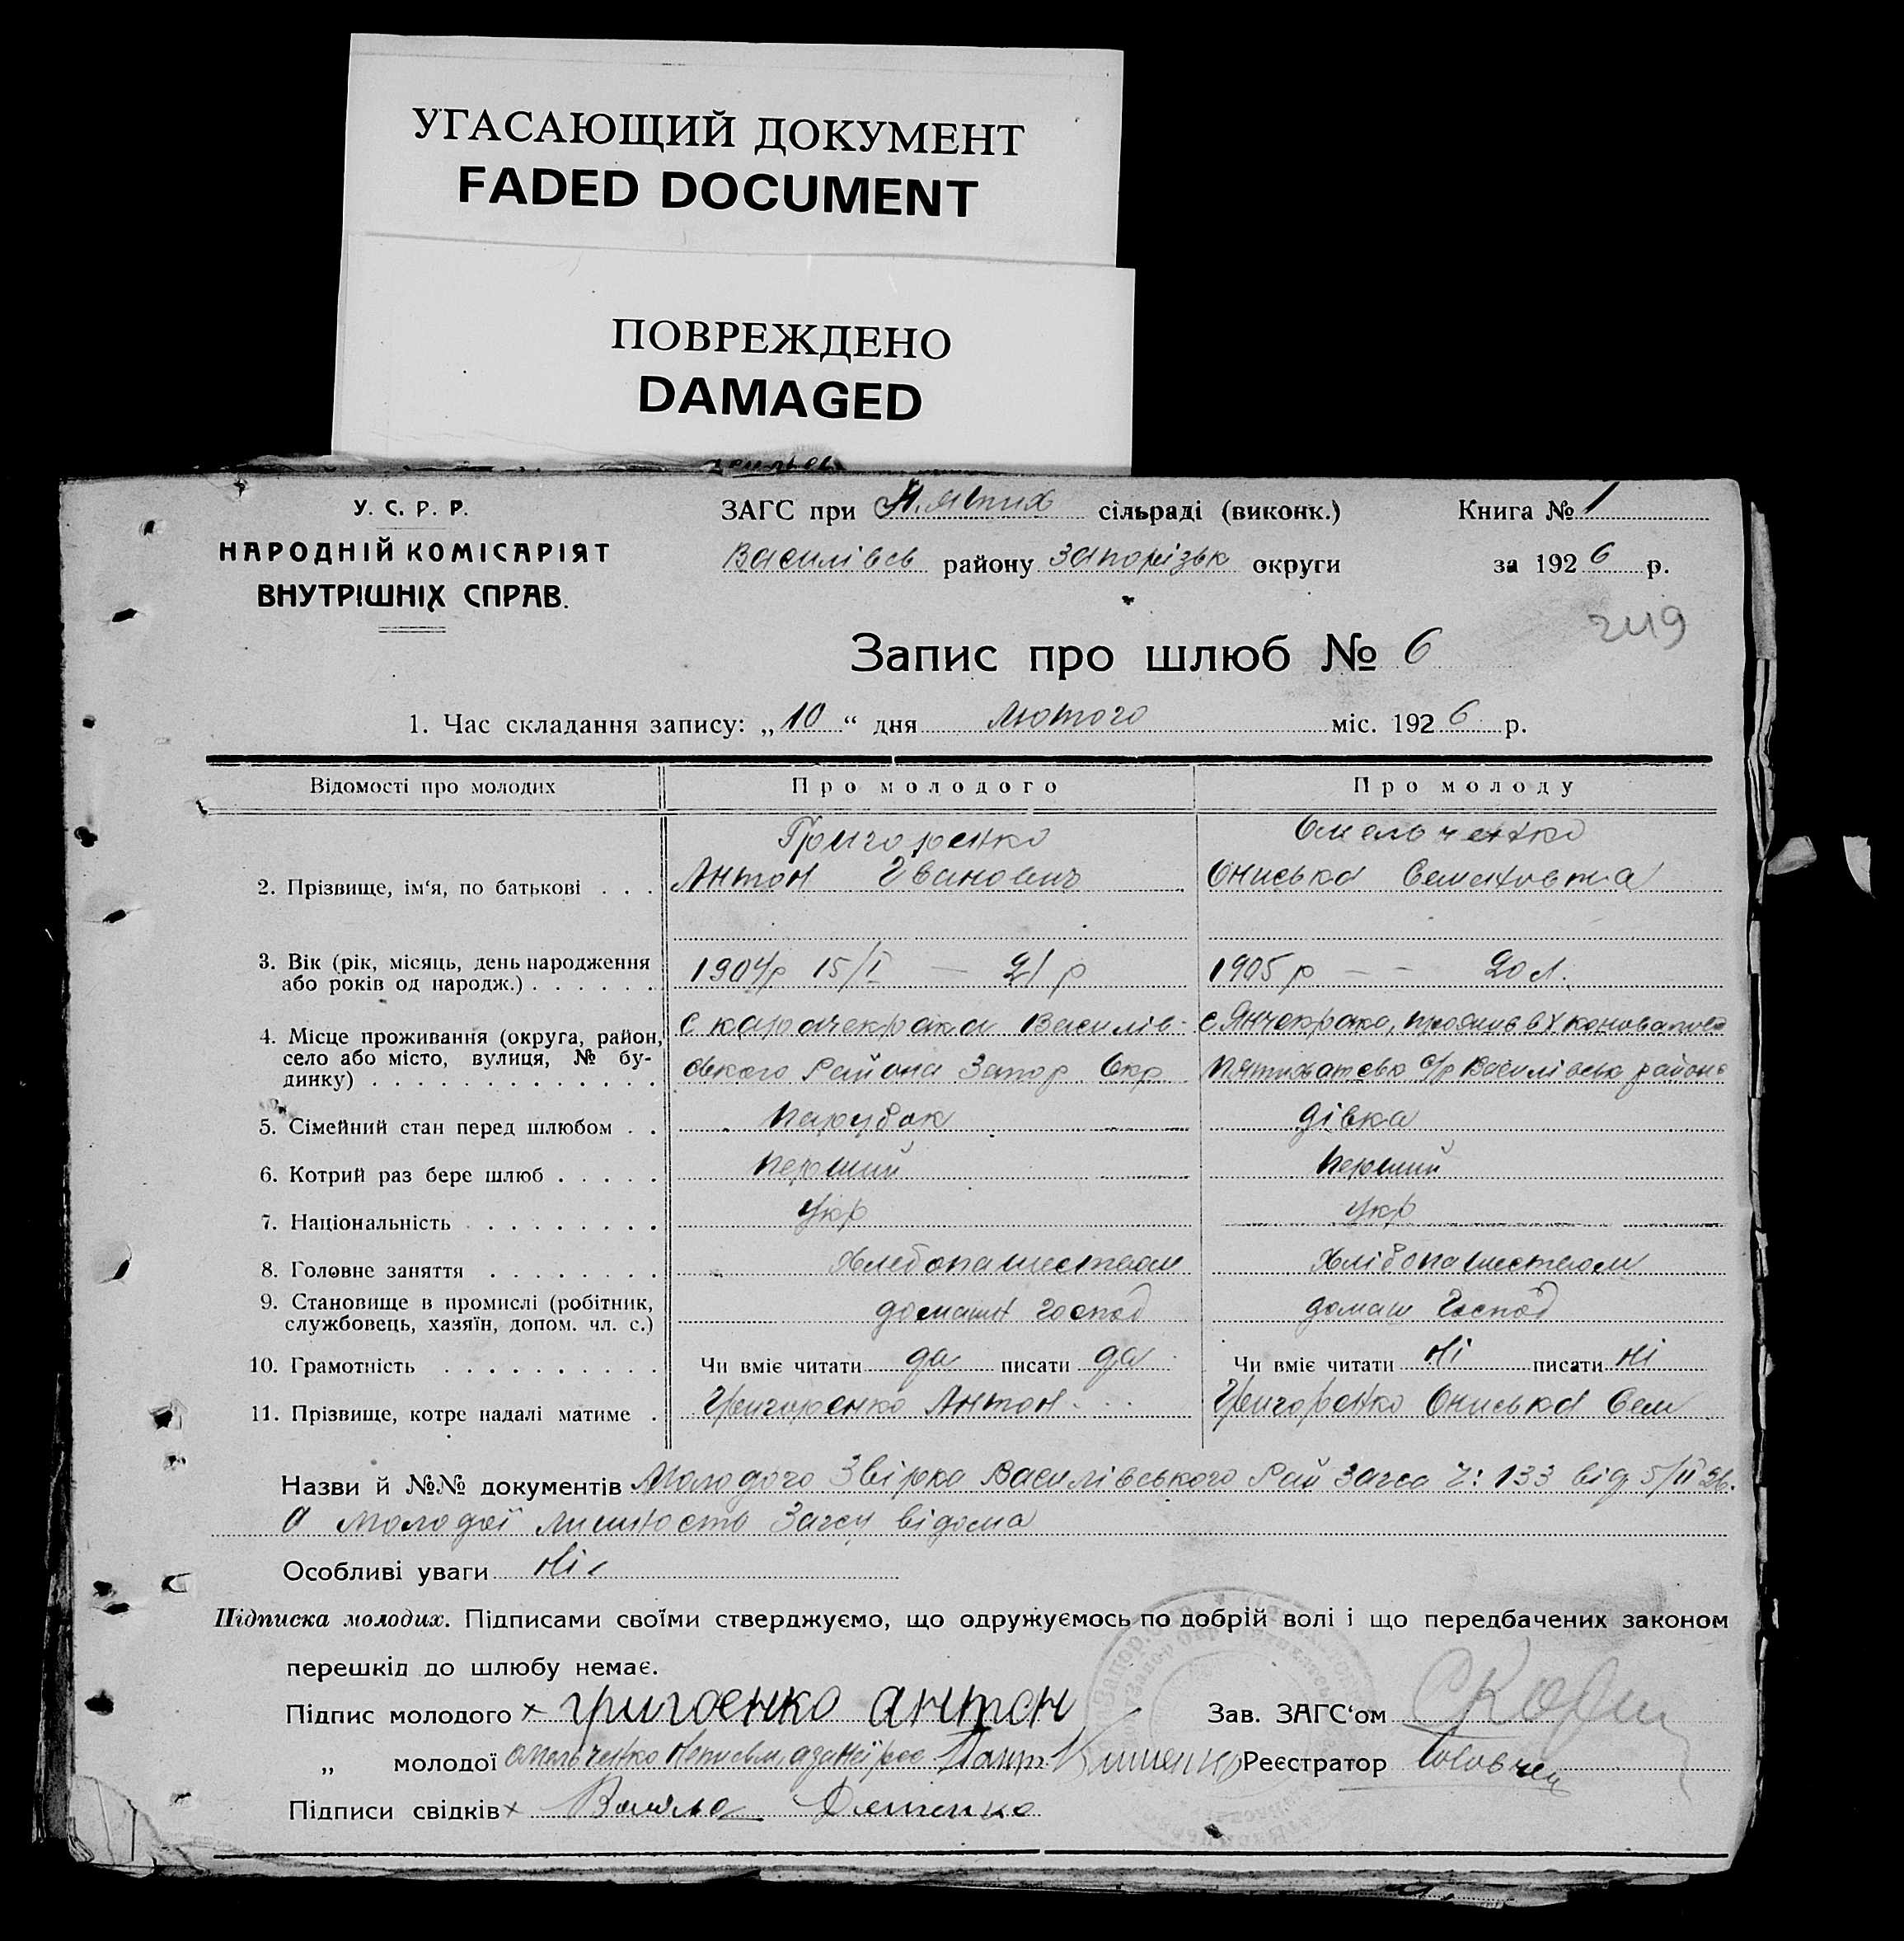 УГАСАЮЩИЙ ДОКУМЕНТ
FADED DOCUMENT
ПОВРЕЖДЕНО
DAMAGED
У. С. Р. Р.
НАРОДНІЙ КОМІСАРІЯТ
ВНУТРІШНІХ СПРАВ.
ЗАГС при сільраді (виконк.)
Василівсь району Запорізьк округи
Книга № 1
за 1926 р.
249
Запис про шлюб № 6
1. Час складання запису: „10“ дня лютого міс. 1926 р.
Відомості про молодих Про молодого Про молоду
2. Прізвище, ім‘я, по батькові . . . Григоренко Антон Іванович Омельченко Ониська Семеновна
3. Вік (рік, місяць, день народження
або років од народж.) . . . . . . 1904р 15/I — 21 р 1905 р — — 20 л.
4. Місце проживання (округа, район,
село або місто, вулиця, № бу-
динку) . . . . . . . . . . . . . с карачекрака Василів-
ського Района Запор Окр
с Янчокрако, в х
Пятихатсько с/р Василівськ район
5. Сімейний стан перед шлюбом . . парубок дівка
6. Котрий раз бере шлюб . . . . . перший перший
7. Національність . . . . . . . . . Укр укр
8. Головне заняття . . . . . . . . Хлебопашеством Хлібопашеством
9. Становище в промислі (робітник,
службовець, хазяїн, допом. чл. с.) домашн господ домаш Господ
10. Грамотність . . . . . . . . . . Чи вміє читати да писати да Чи вміє читати ні писати ні
11. Прізвище, котре надалі матиме . Григоренко Антон Григоренко Ониська Сем
Назви й №№ документів Молодого Звірка Василівського Рай Загса Ч: 133 від 5/II 26.
а молодої личность Загсу відома
Особливі уваги ні
Підписка молодих. Підписами своїми стверджуємо, що одружуємось по добрій волі і що передбачених законом
перешкід до шлюбу немає.
Підпис молодого х григоенко антон
Зав. ЗАГС‘ом
„ молодої омельченко неписьм, а за неї рос
Реєстратор
Підписи свідків х